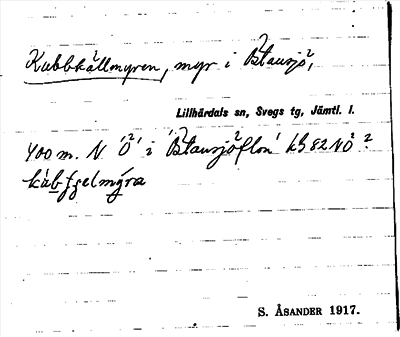 Kubbkällmyren, myr i Blausjö,
Lillhärdals sn, Svegs tg, Jämtl. l.
400 m. N 'Ö' i 'Blausjöflon' kb 82 NÖ
kábfʒelmýra
S. ÅSANDER 1917.